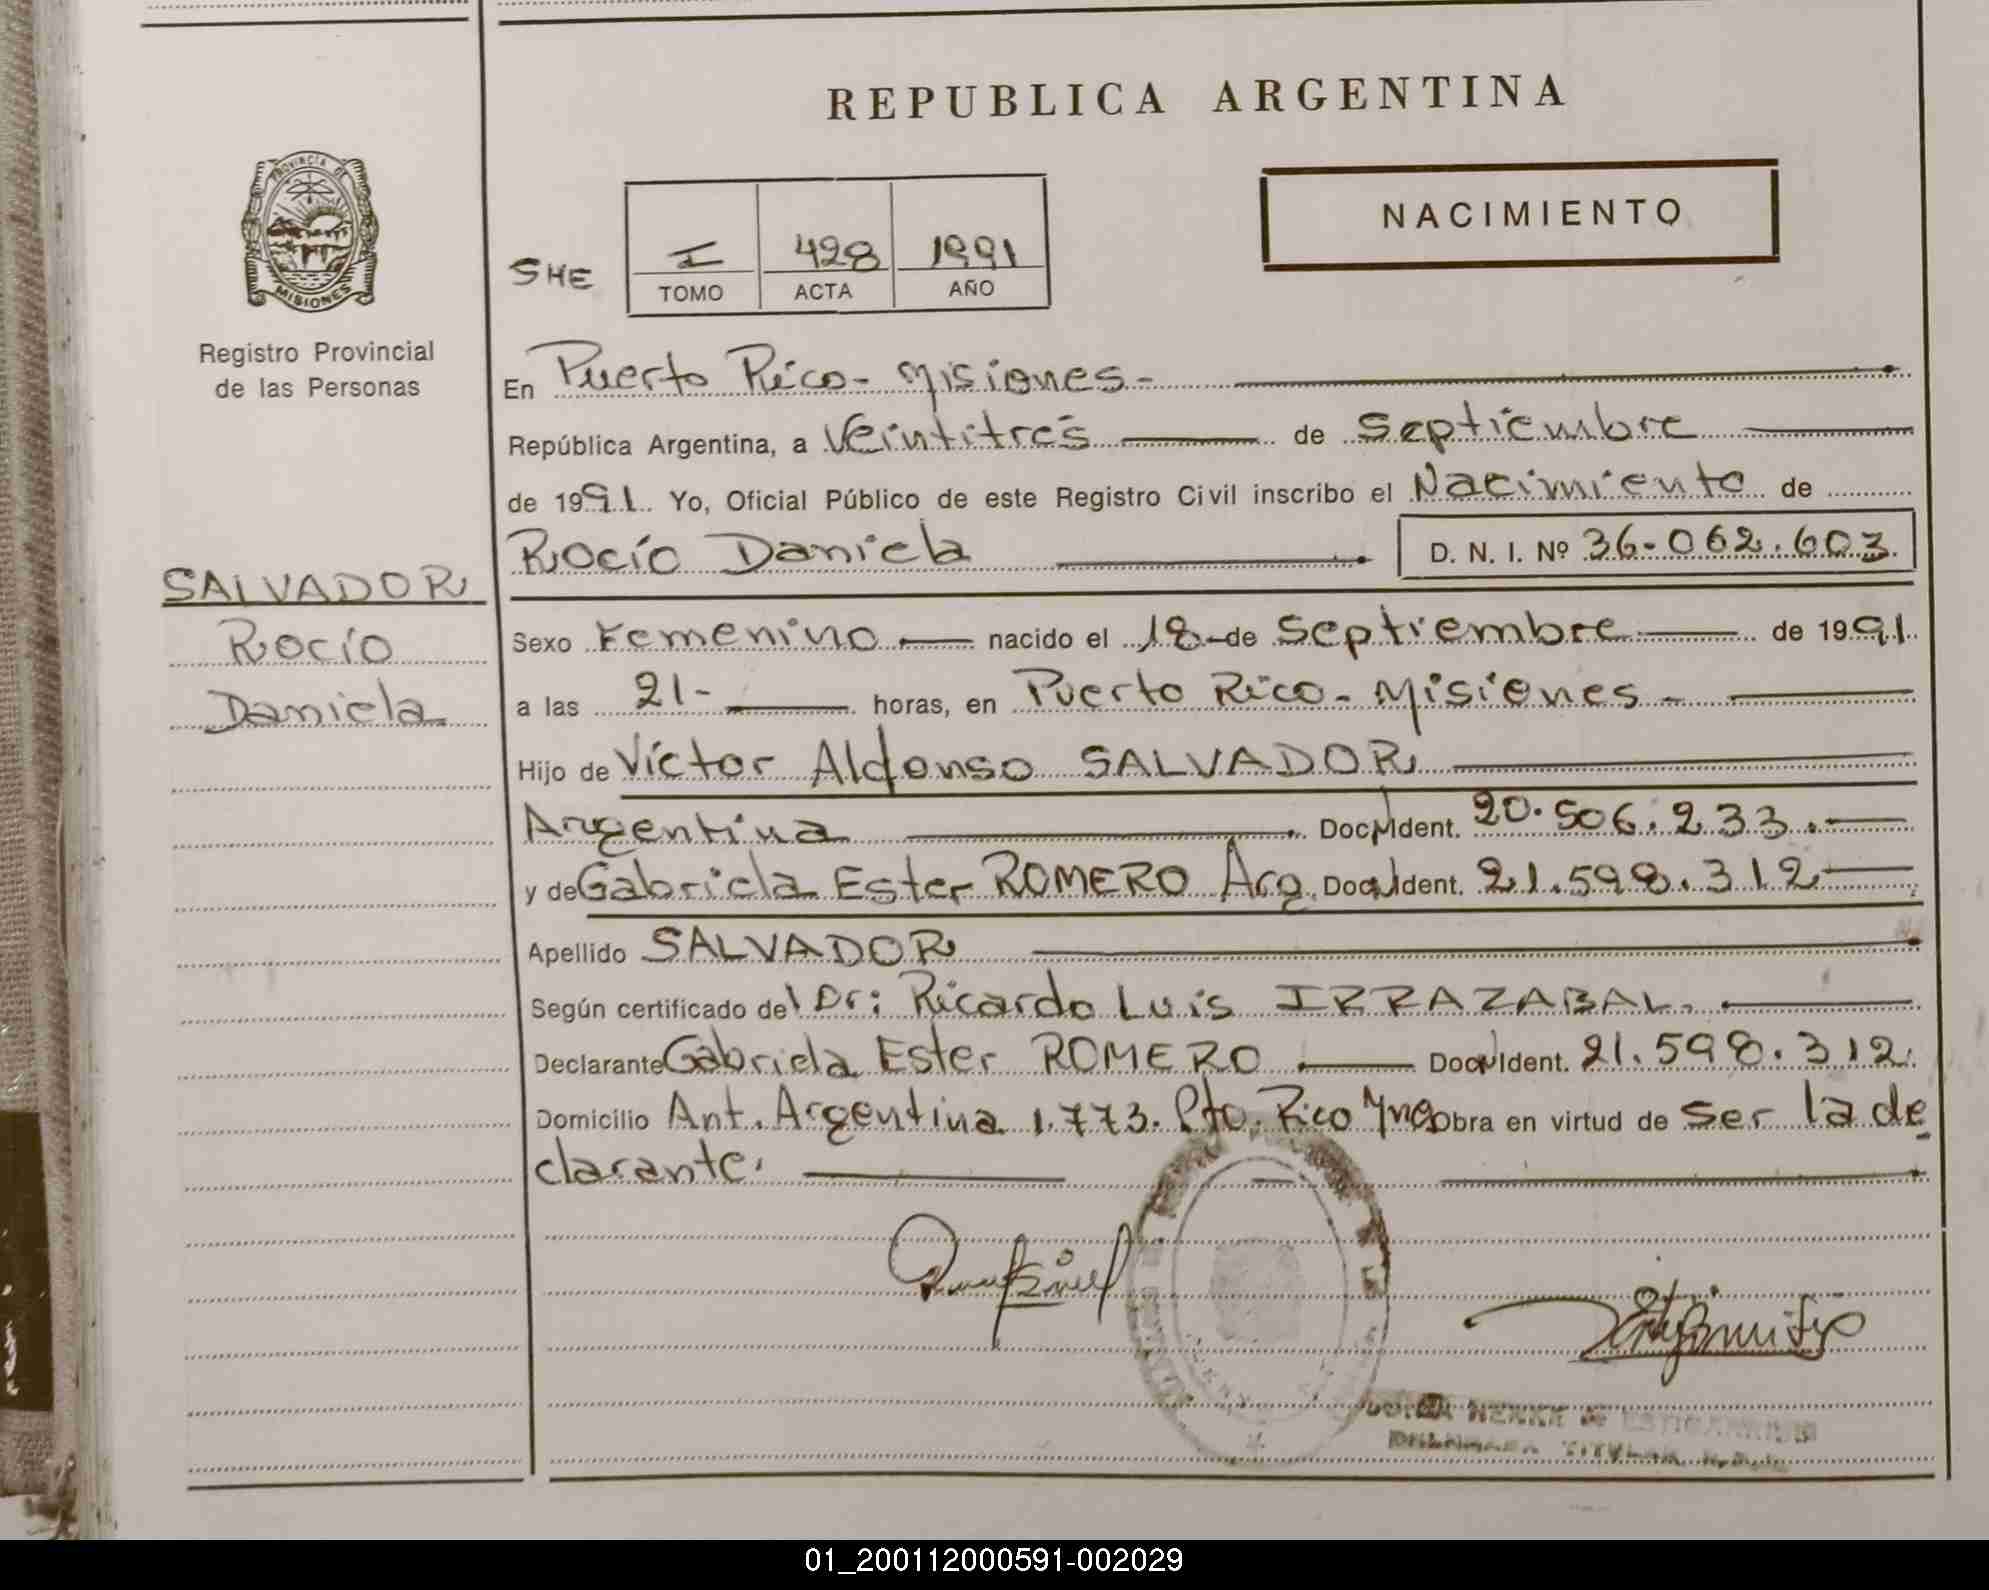 REPUBLICA ARGENTINA
PROVINCIA DE
MISIONES
Registro Provincial
de las Personas
NACIMIENTO
SHE
I 428 1991
TOMO ACTA AÑO
En Puerto Rico - Misiones -
República Argentina, a Veintitrés de Septiembre
de 1991. Yo, Oficial Público de este Registro Civil inscribo el Nacimiento de
Rocío Daniela D. N. I. Nº 36-062.603
SALVADOR
Rocío
Daniela
Sexo Femenino nacido el 18 de Septiembre de 1991.
a las 21- horas, en Puerto Rico - Misiones -
Hijo de Víctor Aldonso SALVADOR
Argentina Doc. Ident. 20.506.233.
y de Gabriela Ester ROMERO Arg. Doc. Ident. 21.598.312
Apellido SALVADOR
Según certificado del Dr: Ricardo Luis IRRAZABAL.
Declarante Gabriela Ester ROMERO Doc. Ident. 21.598.312.
Domicilio Ant. Argentina 1.773. Pto. Rico Mnes Obra en virtud de ser la de
clarante.
01_200112000591-002029